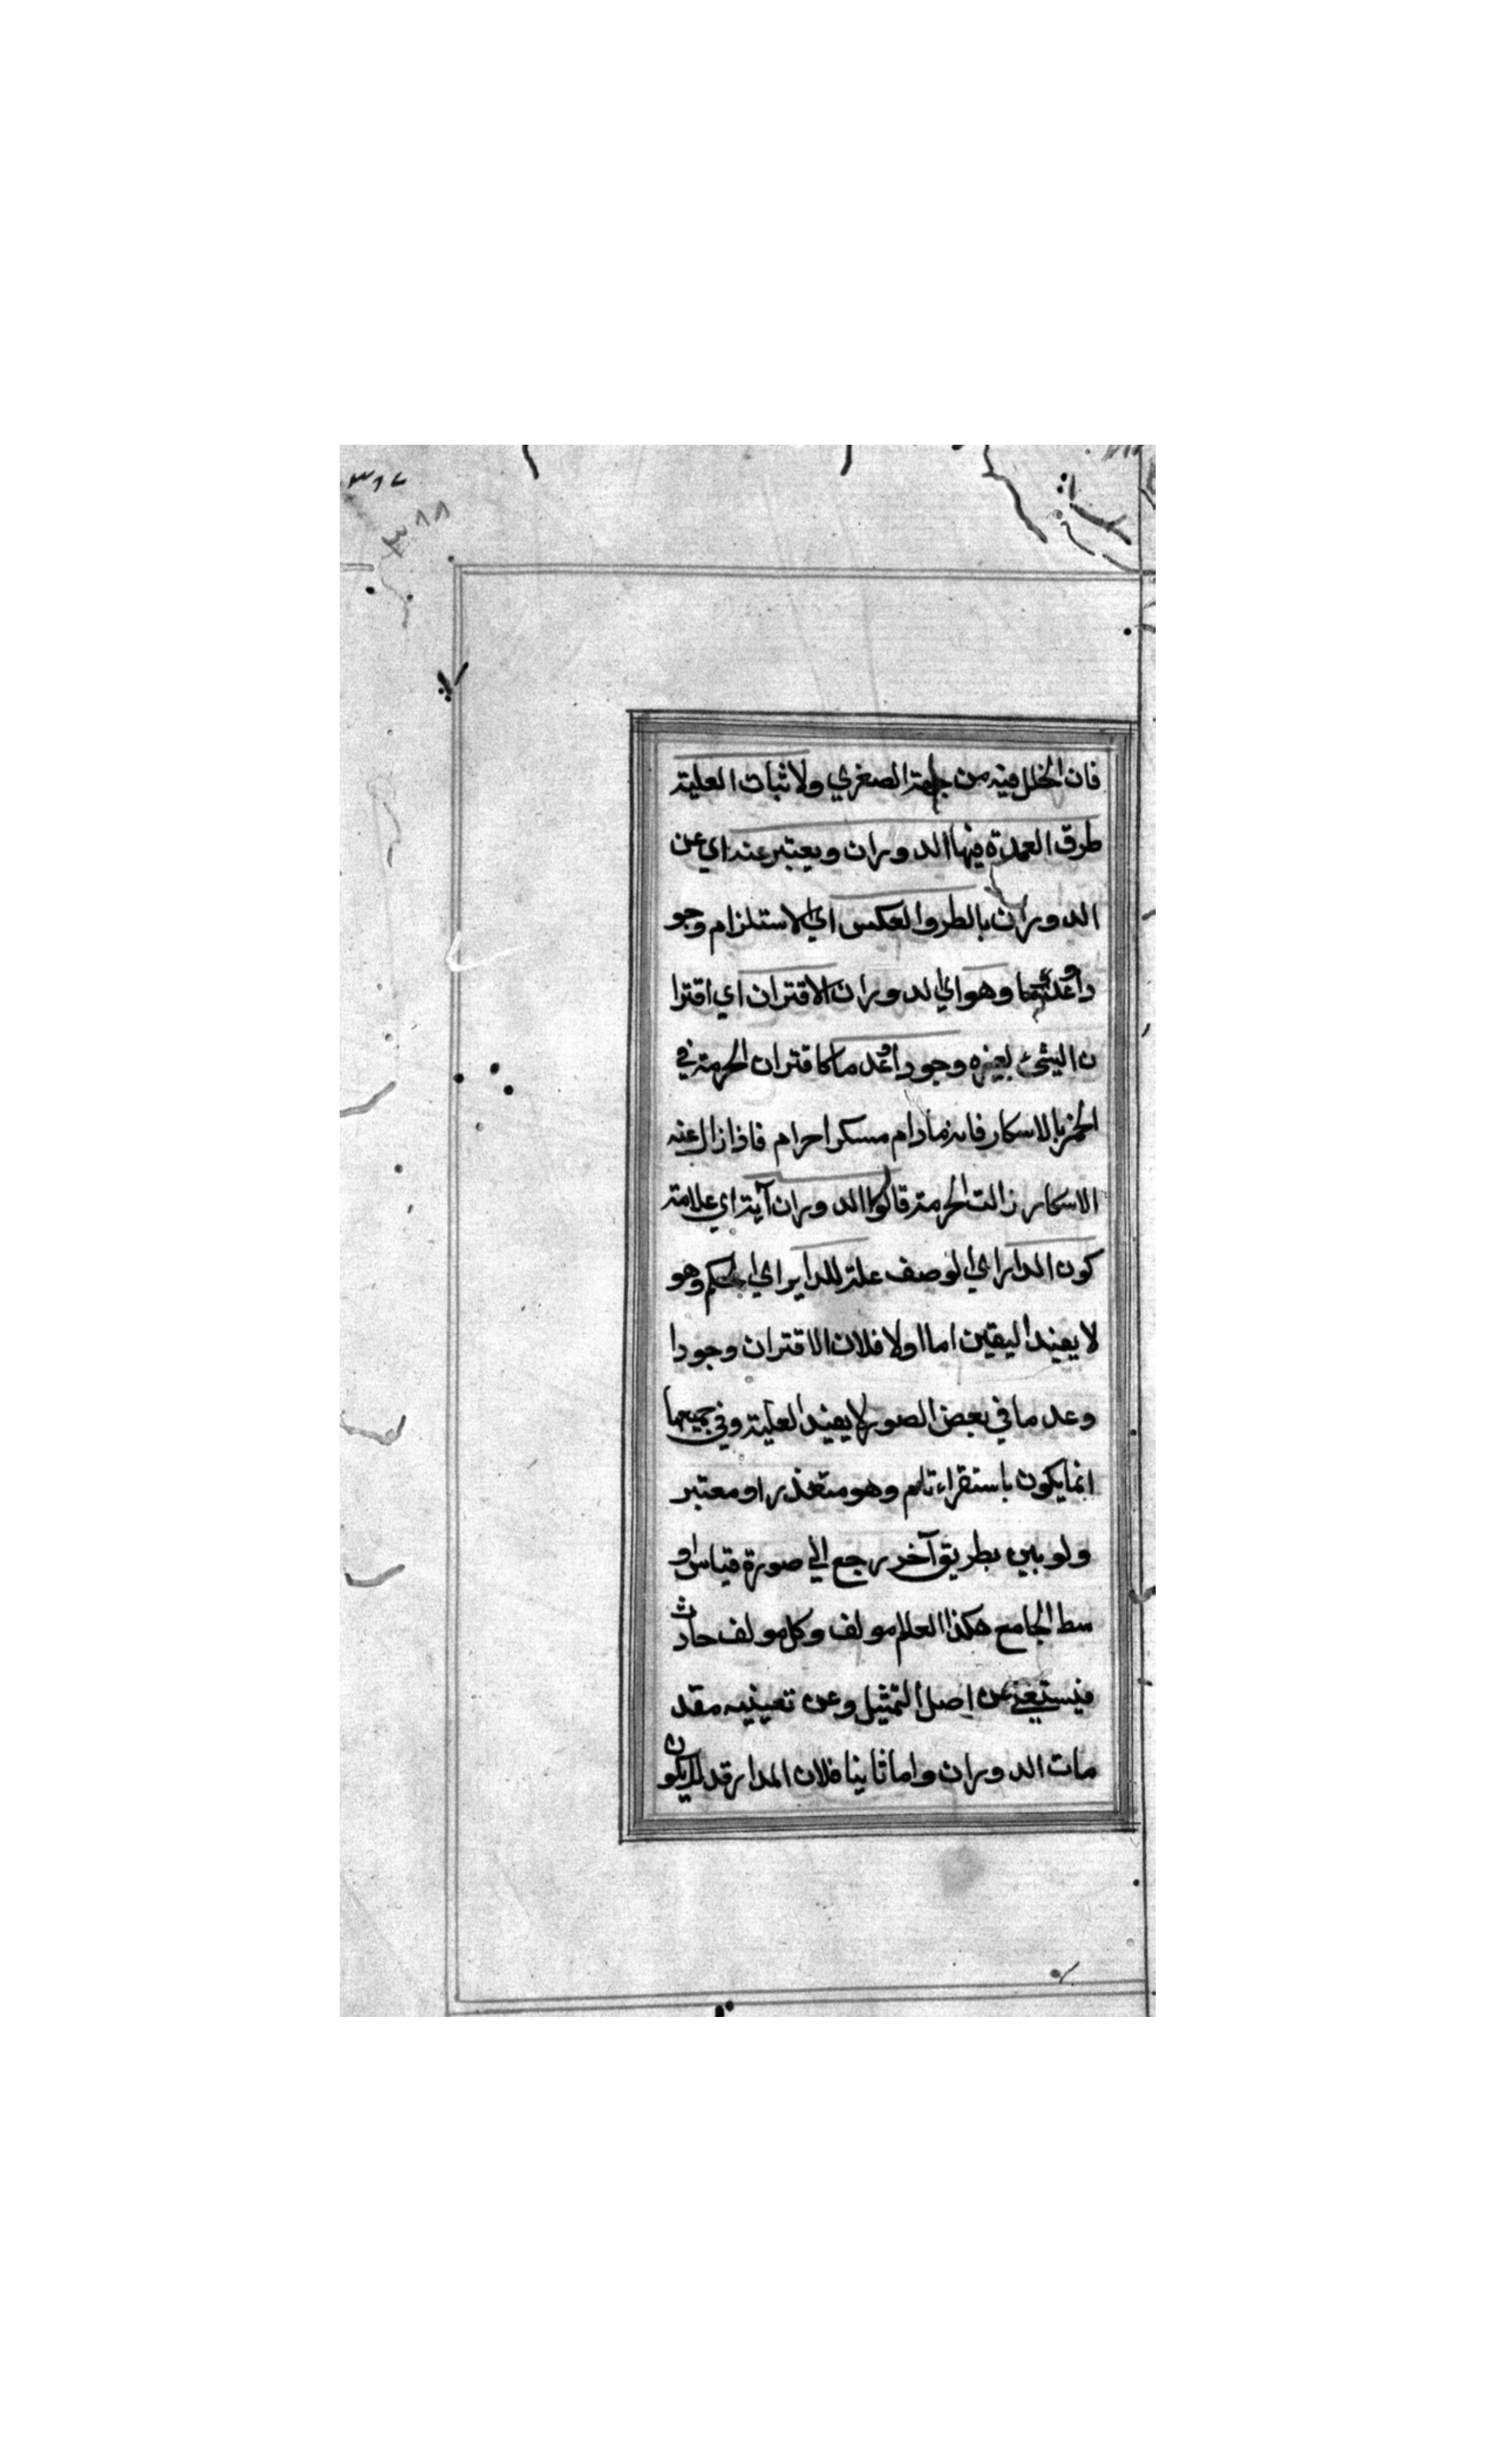 ٣٦٧
٣٨٨
فان الخلل فيه من جهة الصغري ولاثبات العلية
طرق العمدة فيها الدوران ويعتبر عنه اي عن
الدوران بالطرد والعكس اي الاستلزام وجو
دا وعدما وهو اي الدوران الاقتران اي اقترا
ن الشئ بغيره وجودا وعدما كاقتران الحرمة في
الخمر بالاسكار فانه مادام مسكرا حرام فاذا زال عنه
الاسكار زالت الحرمة قالوا الدوران آية اي علامة
كون المدار اي الوصف علة للداير اي الحكم وهو
لا يفيد اليقين اما اولا فلان الاقتران وجودا
وعدما في بعض الصور لا يفيد العلية وفي جميعها
انما يكون باستقراء تام وهو متعذر او معتبر
ولو بين بطريق آخر رجع الي صورة قياس او
سط الجامع هكذا العالم مولف وكل مولف حادث
فيستغني عن اصل التمثيل وعن تعيينه مقد
مات الدوران واما ثانيا فلان المدار قد يكون